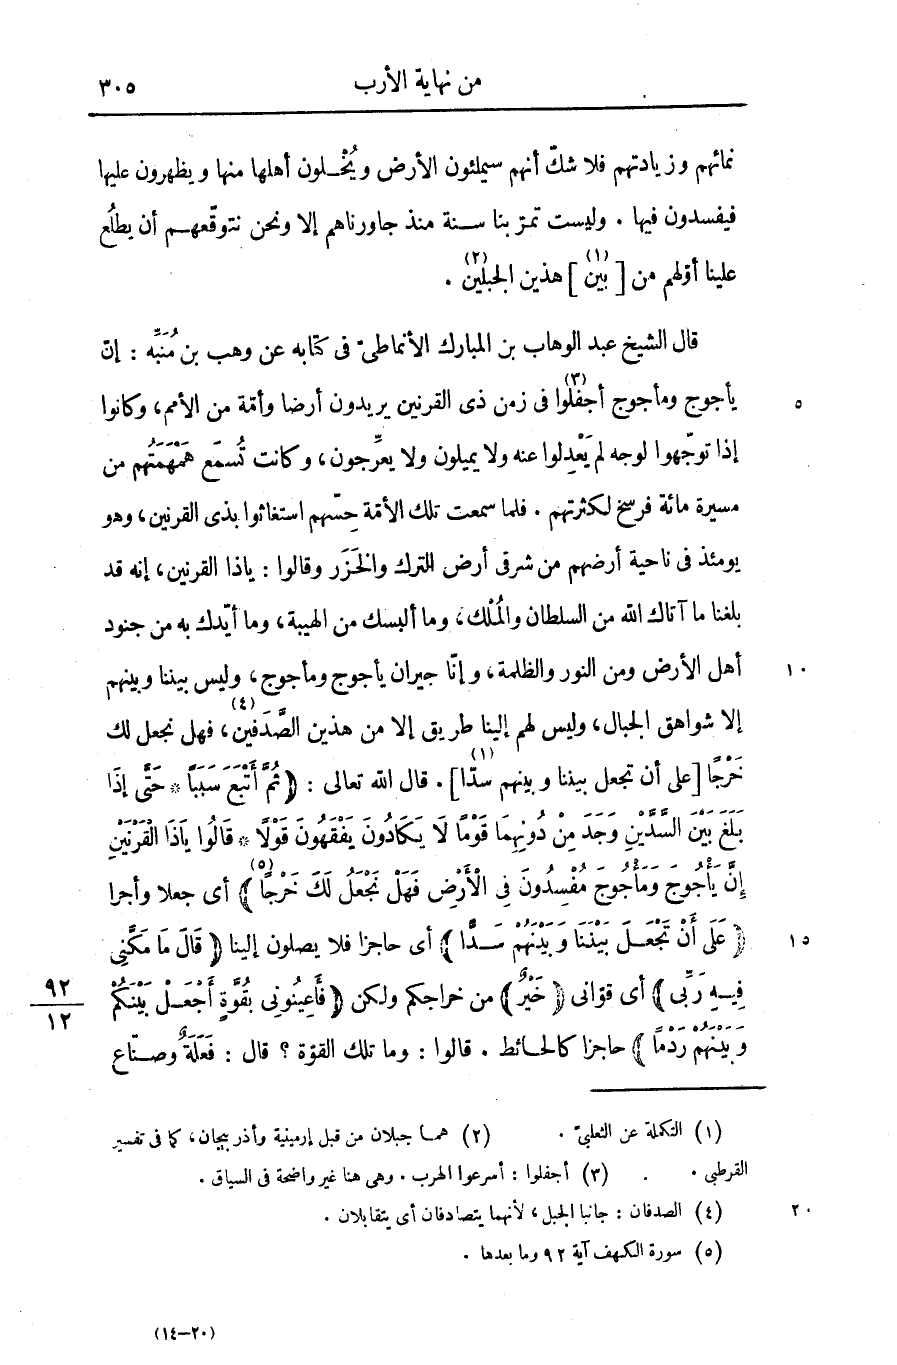 من نهاية الأرب ٣٠٥
نمائهم وزيادتهم فلا شكّ أنهم سيملئون الأرض ويُخْــلون أهلها منها ويظهرون عليها
فيفسدون فيها . وليست تمرّ بنا سـنة منذ جاورناهم إلا ونحن نتوقّعهــم أن يطلُع
علينا أوّلهم من [ بين (١) ] هذين الجبلين (٢) .
قال الشيخ عبد الوهاب بن المبارك الأنماطىّ فى كتابه عن وهب بن مُنَبِّه : إنّ
يأجوج ومأجوج أجفلوا (٣) فى زمن ذى القرنين يريدون أرضا وأمّة من الأمم، وكانوا ٥
إذا توجّهوا لوجه لم يَعْدِلوا عنه ولا يميلون ولا يعرِّجون، وكانت تُسمَع هَمْهَمَتُهم من
مسيرة مائة فرسخ لكثرتهم . فلما سمعت تلك الأمّة حِسّهم استغاثوا بذى القرنين، وهو
يومئذ فى ناحية أرضهم من شرقى أرض الترك والخَزَر وقالوا : ياذا القرنين، إنه قد
بلغنا ما آتاك الله من السلطان والمُلْك، وما ألبسك من الهيبة، وما أيّدك به من جنود
أهل الأرض ومن النور والظلمة، وإنّا جيران يأجوج ومأجوج، وليس بيننا وبينهم ١٠
إلا شواهق الجبال، وليس لهم إلينا طريق إلا من هذين الصَّدَفين (٤)، فهل نجعل لك
خَرْجًا [على أن تجعل بيننا وبينهم سدّا (١)] . قال الله تعالى : ﴿ ثُمَّ أَتْبَعَ سَبَبًا * حَتَّى إِذَا
بَلَغَ بَيْنَ السَّدَّيْنِ وَجَدَ مِنْ دُونِهِمَا قَوْمًا لَا يَكَادُونَ يَفْقَهُونَ قَوْلًا * قَالُوا يَاذَا الْقَرْنَيْنِ
إِنَّ يَأْجُوجَ وَمَأْجُوجَ مُفْسِدُونَ فِى الْأَرْضِ فَهَلْ نَجْعَلُ لَكَ خَرْجًا (٥) ﴾ أى جعلا وأجرا
﴿ عَلَى أَنْ تَجْعَــلَ بَيْنَنَا وَبَيْنَهُمْ سَــدًّا ﴾ أى حاجزا فلا يصلون إلينا ﴿ قَالَ مَا مَكَّنِّى ١٥
فِيــهِ رَبِّى ﴾ أى قوّانى ﴿ خَيْرٌ ﴾ من خراجكم ولكن ﴿ فَأَعِينُونِى بِقُوَّةٍ أَجْعَــلْ بَيْنَكُمْ ٩٢/١٢
وَبَيْنَهُمْ رَدْمًا ﴾ حاجزا كالحـائط . قالوا : وما تلك القوّة ؟ قال : فَعَلَةٌ وصــنّاع
(١) التكملة عن الثعلبىّ . (٢) همـا جبلان من قبل إرمينية وأذربيجان، كما فى تفسير
القرطبى . (٣) أجفلوا : أسرعوا الهرب . وهى هنا غير واضحة فى السياق .
(٤) الصدفان : جانبا الجبل، لأنهما يتصادفان أى يتقابلان . ٢٠
(٥) سورة الكهف آية ٩٢ وما بعدها .
(٢٠-١٤)